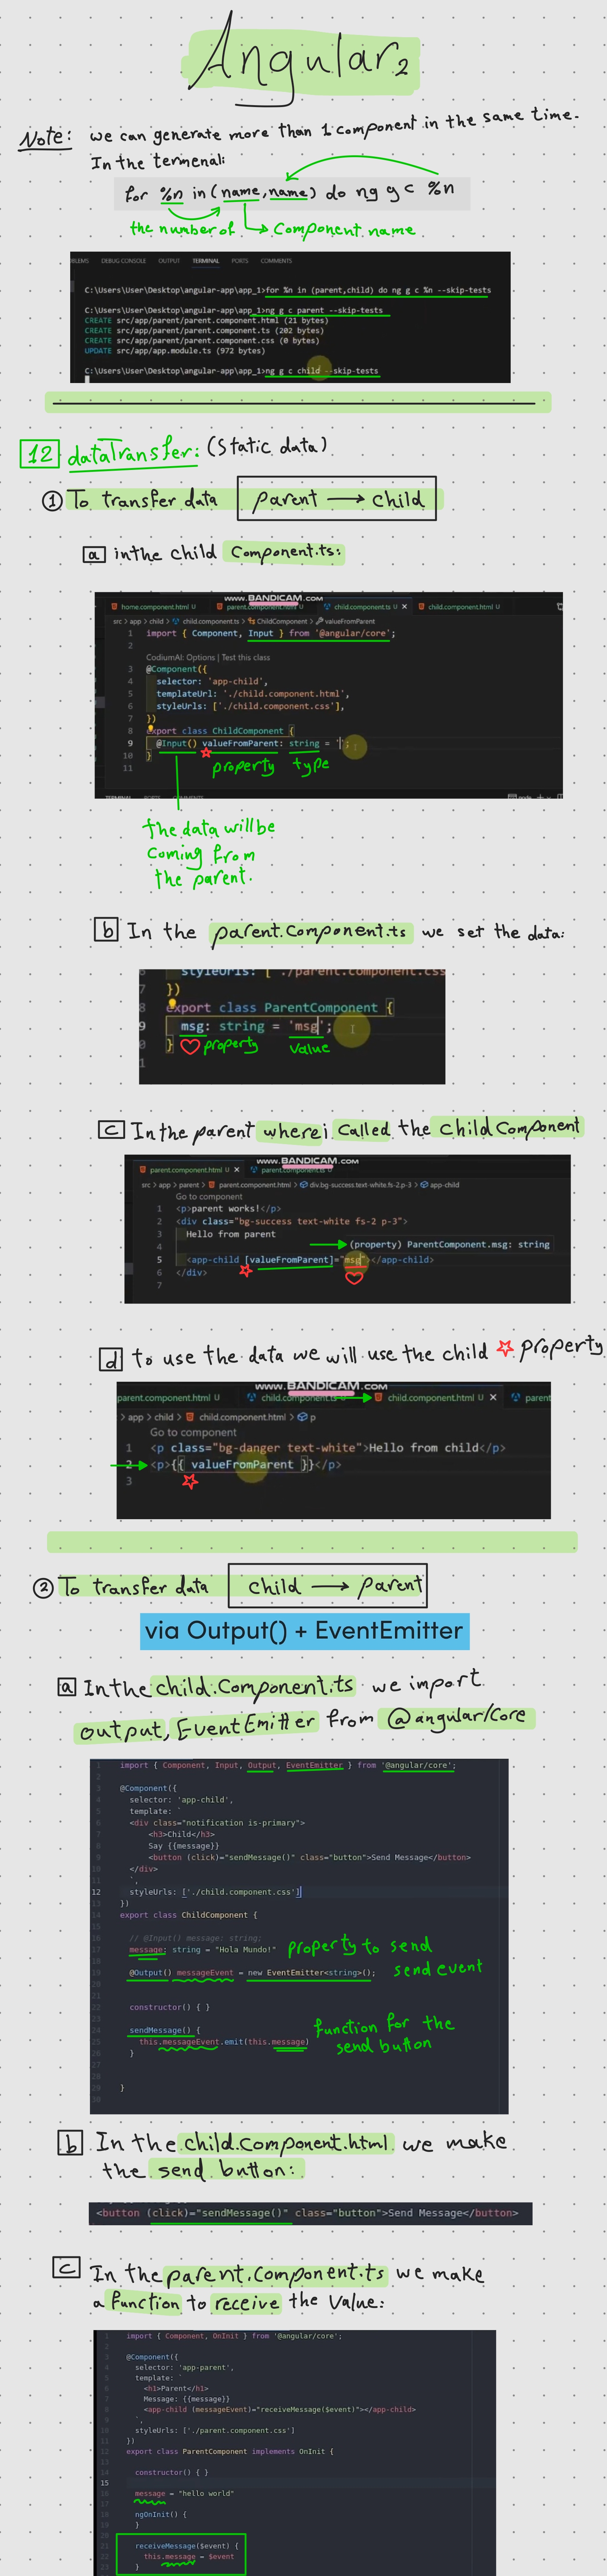 Angular 2
Note: we can generate more than 1 component in the same time.
In the termenal:
for %n in (name,name) do ng g c %n
the number of
Component name
BLEMS DEBUG CONSOLE OUTPUT TERMINAL PORTS COMMENTS
C:\Users\User\Desktop\angular-app\app_1>for %n in (parent,child) do ng g c %n --skip-tests
C:\Users\User\Desktop\angular-app\app_1>ng g c parent --skip-tests
CREATE src/app/parent/parent.component.html (21 bytes)
CREATE src/app/parent/parent.component.ts (202 bytes)
CREATE src/app/parent/parent.component.css (0 bytes)
UPDATE src/app/app.module.ts (972 bytes)
C:\Users\User\Desktop\angular-app\app_1>ng g c child --skip-tests
12 dataTransfer: (Static data)
1 To transfer data parent → child
a in the child Component.ts:
www.BANDICAM.com
home.component.html U parent.component.html U child.component.ts U × child.component.html U
src > app > child > child.component.ts > ChildComponent > valueFromParent
1 import { Component, Input } from '@angular/core';
2
CodiumAI: Options | Test this class
3 @Component({
4 selector: 'app-child',
5 templateUrl: './child.component.html',
6 styleUrls: ['./child.component.css'],
7 })
8 export class ChildComponent {
9 @Input() valueFromParent: string = '';
10 }
11
property type
TERMINAL PORTS COMMENTS
the data will be
coming from
the parent.
b In the parent.Component.ts we set the data:
styleUrls: [ './parent.component.css
7 })
8 export class ParentComponent {
9 msg: string = 'msg';
0 }
property value
1
c In the parent where i called the Child Component
www.BANDICAM.com
parent.component.html U × parent.component.ts U
src > app > parent > parent.component.html > div.bg-success.text-white.fs-2.p-3 > app-child
Go to component
1 <p>parent works!</p>
2 <div class="bg-success text-white fs-2 p-3">
3 Hello from parent
4 (property) ParentComponent.msg: string
5 <app-child [valueFromParent]="msg"></app-child>
6 </div>
7
d to use the data we will use the child property
www.BANDICAM.com
parent.component.html U child.component.ts U child.component.html U × parent
> app > child > child.component.html > p
Go to component
1 <p class="bg-danger text-white">Hello from child</p>
2 <p>{{ valueFromParent }}</p>
3
2 To transfer data Child → parent
via Output() + EventEmitter
a In the child.Component.ts we import
output, EventEmitter from @angular/core
1 import { Component, Input, Output, EventEmitter } from '@angular/core';
2
3 @Component({
4 selector: 'app-child',
5 template: `
6 <div class="notification is-primary">
7 <h3>Child</h3>
8 Say {{message}}
9 <button (click)="sendMessage()" class="button">Send Message</button>
10 </div>
11 `,
12 styleUrls: ['./child.component.css']
13 })
14 export class ChildComponent {
15
16 // @Input() message: string;
17 message: string = "Hola Mundo!"
property to send
18
19 @Output() messageEvent = new EventEmitter<string>();
send event
20
21
22 constructor() { }
23
24 sendMessage() {
25 this.messageEvent.emit(this.message)
26 }
function for the
send button
27
28
29 }
30
b In the child.Component.html we make
the send button:
<button (click)="sendMessage()" class="button">Send Message</button>
c In the parent.Component.ts we make
a function to receive the value:
1 import { Component, OnInit } from '@angular/core';
2
3 @Component({
4 selector: 'app-parent',
5 template: `
6 <h1>Parent</h1>
7 Message: {{message}}
8 <app-child (messageEvent)="receiveMessage($event)"></app-child>
9 `,
10 styleUrls: ['./parent.component.css']
11 })
12 export class ParentComponent implements OnInit {
13
14 constructor() { }
15
16 message = "hello world"
17
18 ngOnInit() {
19 }
20
21 receiveMessage($event) {
22 this.message = $event
23 }